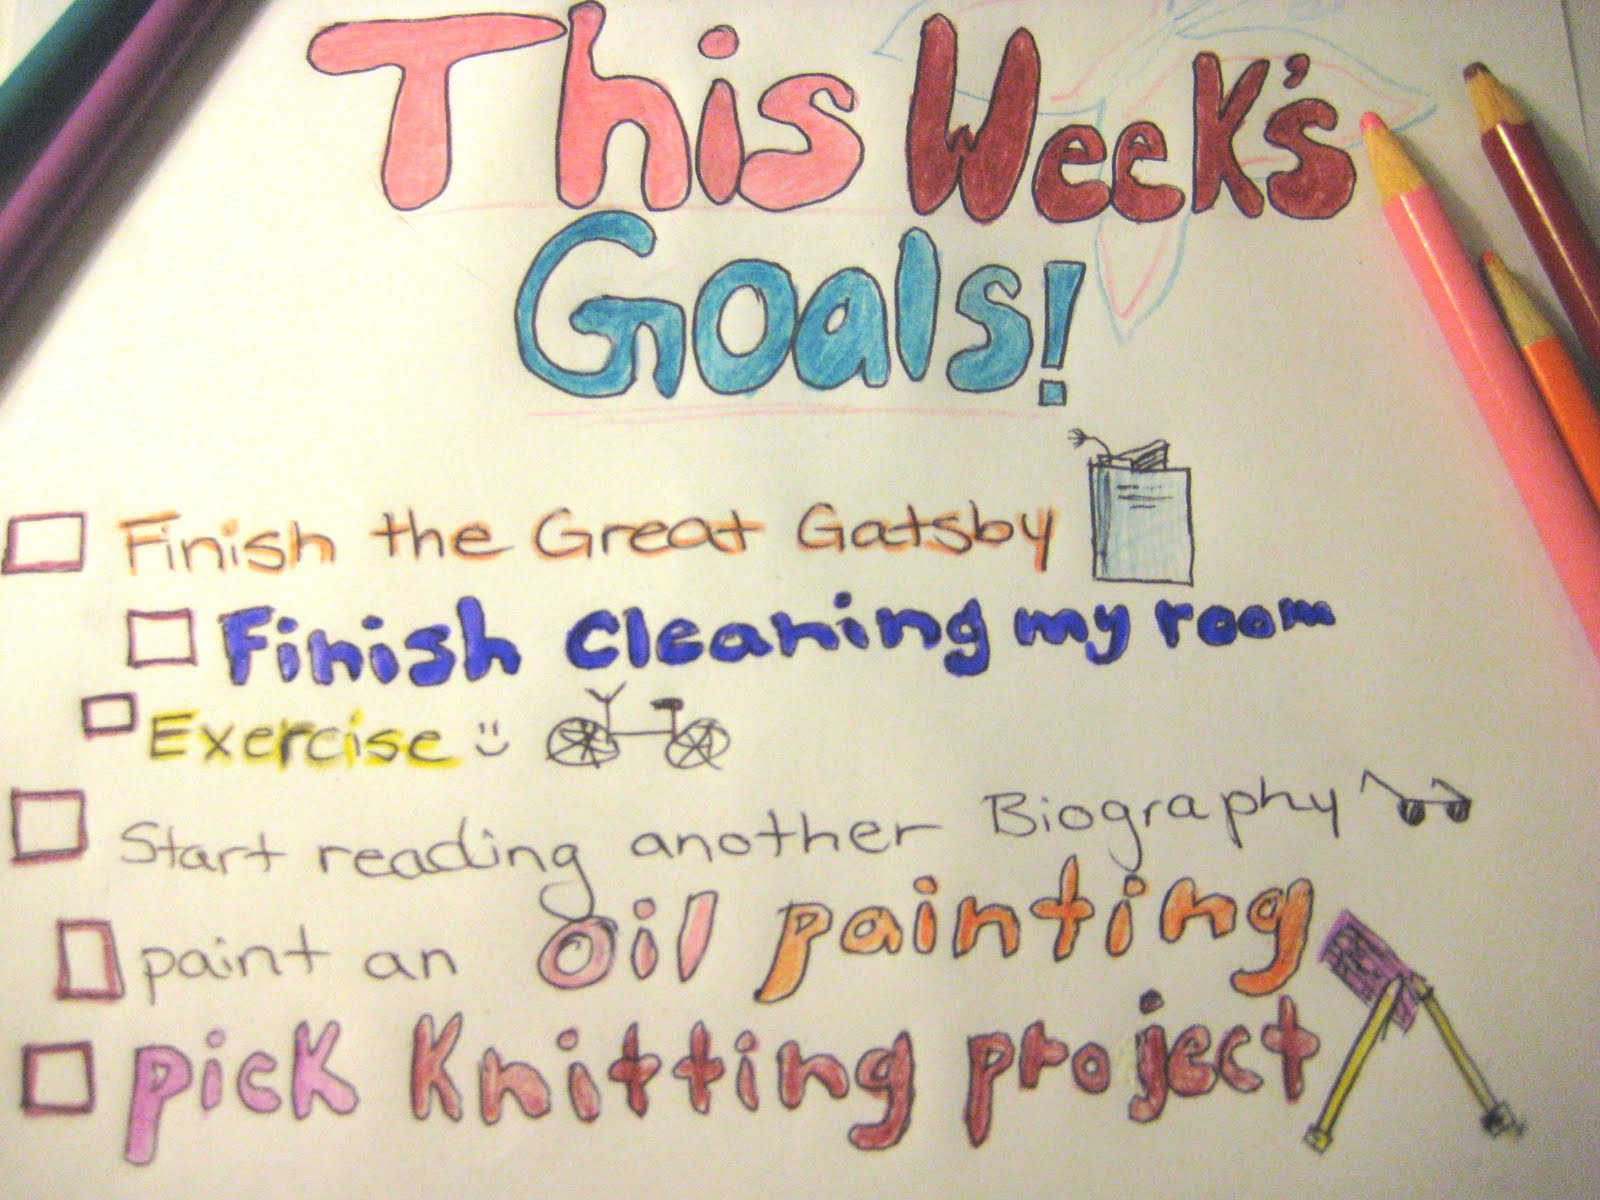 This Week's
Goals!
Finish the Great Gatsby
Finish Cleaning my room
Exercise :)
Start reading another Biography
paint an Oil painting
pick Knitting project